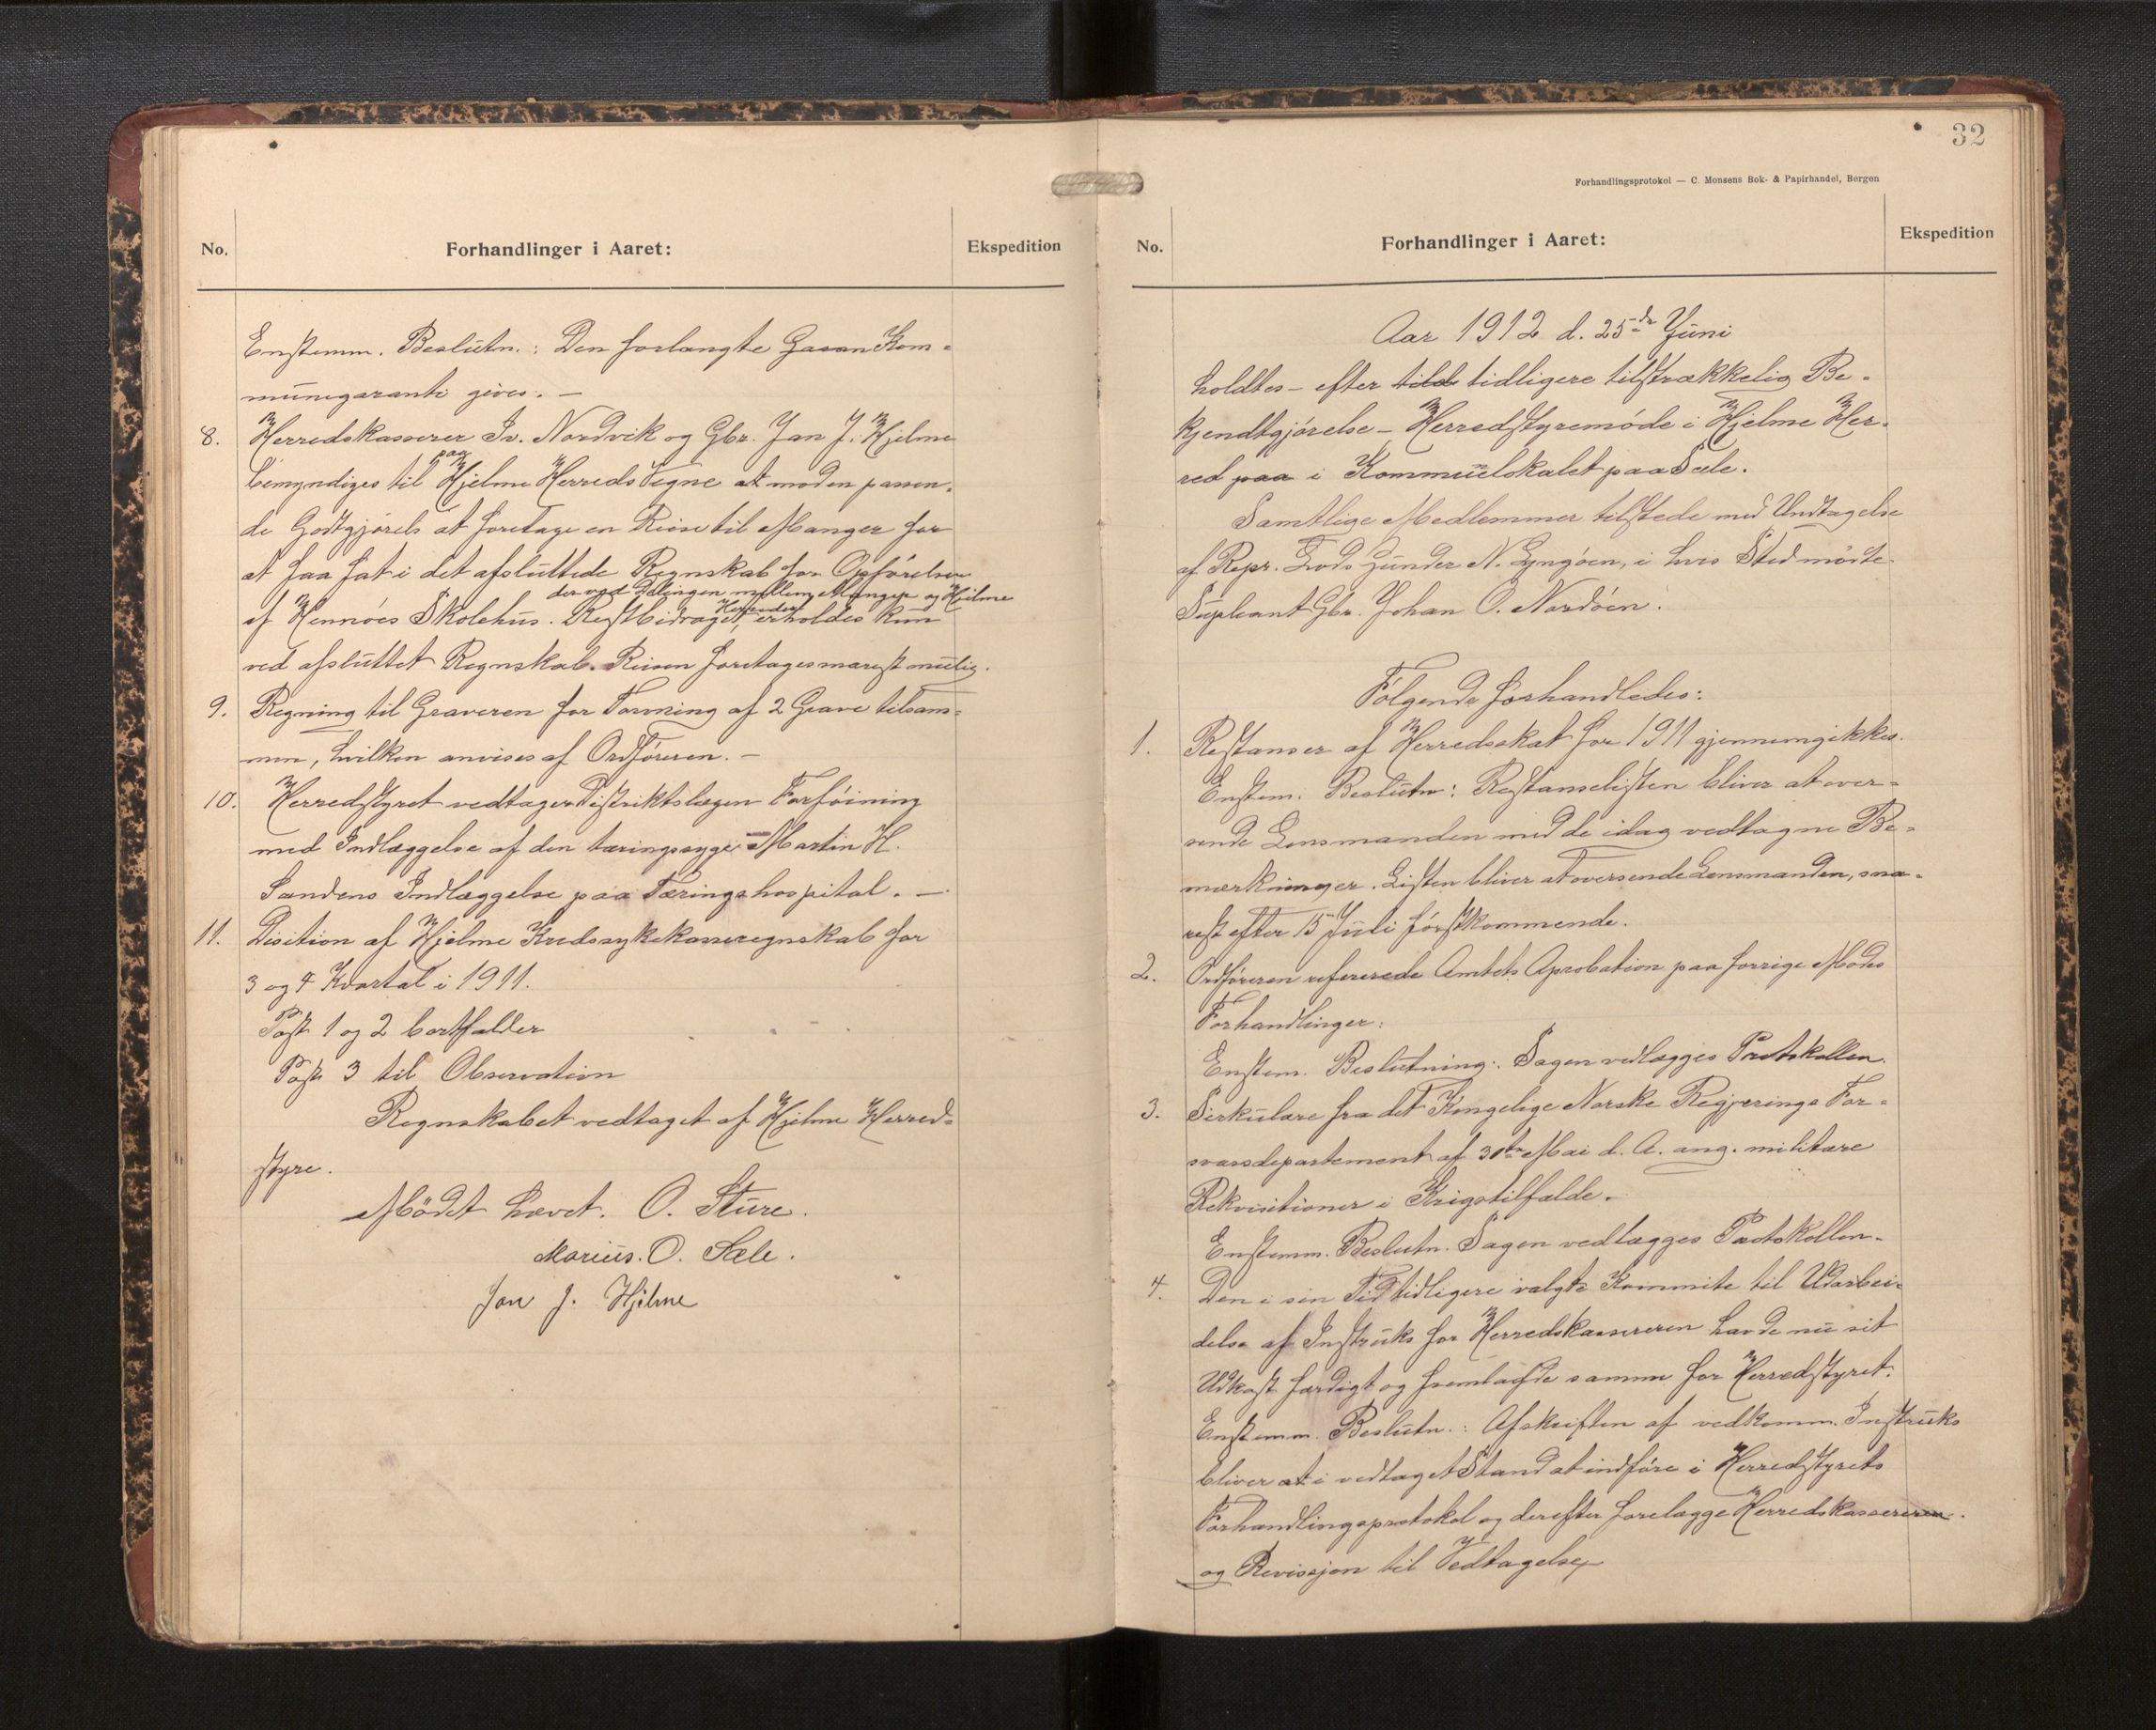 No.
Forhandlinger i Aaret:
Ekspedition
Enstemm. Beslutn.: Den forlangte Kom-
munegaranti gives. —
8. Herredskasserer Iv. Nordvik og Gbr. Jan J. Hjelme
bemyndiges til paa Hjelme Herreds Vegne at moden passen-
de Godtgjørels at foretage en Reise til Manger for
at faa fat i det afsluttede Regnskab for Opførelsen
af Hennøes Skolehus. Restbidraget, der ved Delingen mellem Manger og Hjelme Herreder erholdes kun
ved afsluttet Regnskab. Reisen foretages snarest mulig.
9. Regning til Graveren for Tørming af 2 Grave tilsam-
men, hvilken anvises af Ordføreren. —
10. Herredstyret vedtager Distriktslægen Forføining
med Indlæggelse af den tæringssyge Martin H.
Sandens Indlæggelse paa Tæringshospital. —
11. Disition af Hjelme Kredssykekasseregnskab for
3 og 4 Kvartal i 1911.
Post 1 og 2 bortfalder
Post 3 til Observation
Regnskabet vedtaget af Hjelme Herred-
styre.
Mødet hævet. O. Sture.
Marius. O. Sæle.
Jan J. Hjelme
32
Forhandlingsprotokol — C. Monsens Bok- & Papirhandel, Bergen
No.
Forhandlinger i Aaret:
Ekspedition
Aar 1912 d. 25de Juni
holdtes - efter tild tidligere tilstrækkelig Be-
kjendtgjørelse - Herredstyremøde i Hjelme Her-
red paa i Kommuelokalet paa Sæle.
Samtlige Medlemmer tilstede med Undtagelse
af Repr. Lods Gunder N. Lyngøen, i hvis Sted mødte
Supleant Gbr. Johan O. Nordøen.
Følgende forhandledes:
1. Restanser af Herredsskat for 1911 gjennemgikkes.
Enstem. Beslutn: Restanselisten bliver at over-
sende Lensmanden med de idag vedtagne Be-
mærkninger. Listen bliver at oversende Lensmanden, sna-
rest efter 15 Juli førstkommende.
2. Ordføreren refererede Amtets Aprobation paa forrige Mødes
Forhandlinger:
Enstem. Beslutning: Sagen vedlægges Protokollen.
3. Sirkulære fra det Kongelige Norske Regjerings For-
svarsdepartement af 31te Mai d. A. ang. militære
Rekvisitioner i Krigstilfælde.
Enstemm. Beslutn. Sagen vedlægges Protokollen.
4. Den i sin Tid tidligere valgte Kommite til Udarbei-
delse af Instruks for Herredskassereren havde nu sit
Udkast færdigt og fremlagde samme for Herredstyret.
Enstemm. Beslutn.: Afskriften af vedkomm. Instruks
bliver at i vedtaget Stand at indføre i Herredstyrets
Forhandlingsprotokol og derefter forelægge Herredskassereren
og Revissjon til Vedtagelse